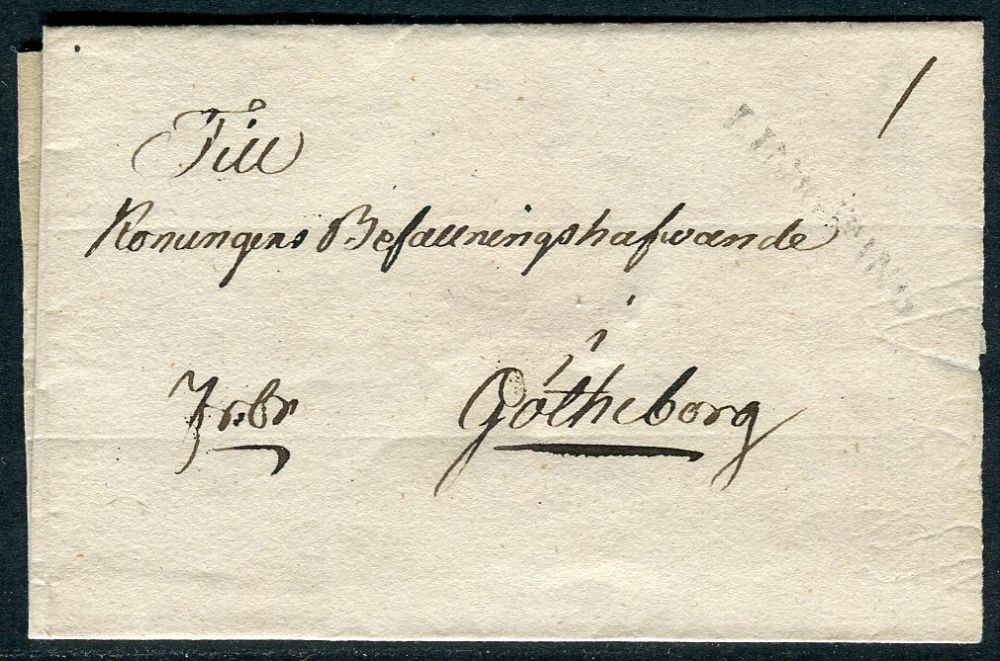 Till
Konungens Befallningshafvande
i
Götheborg